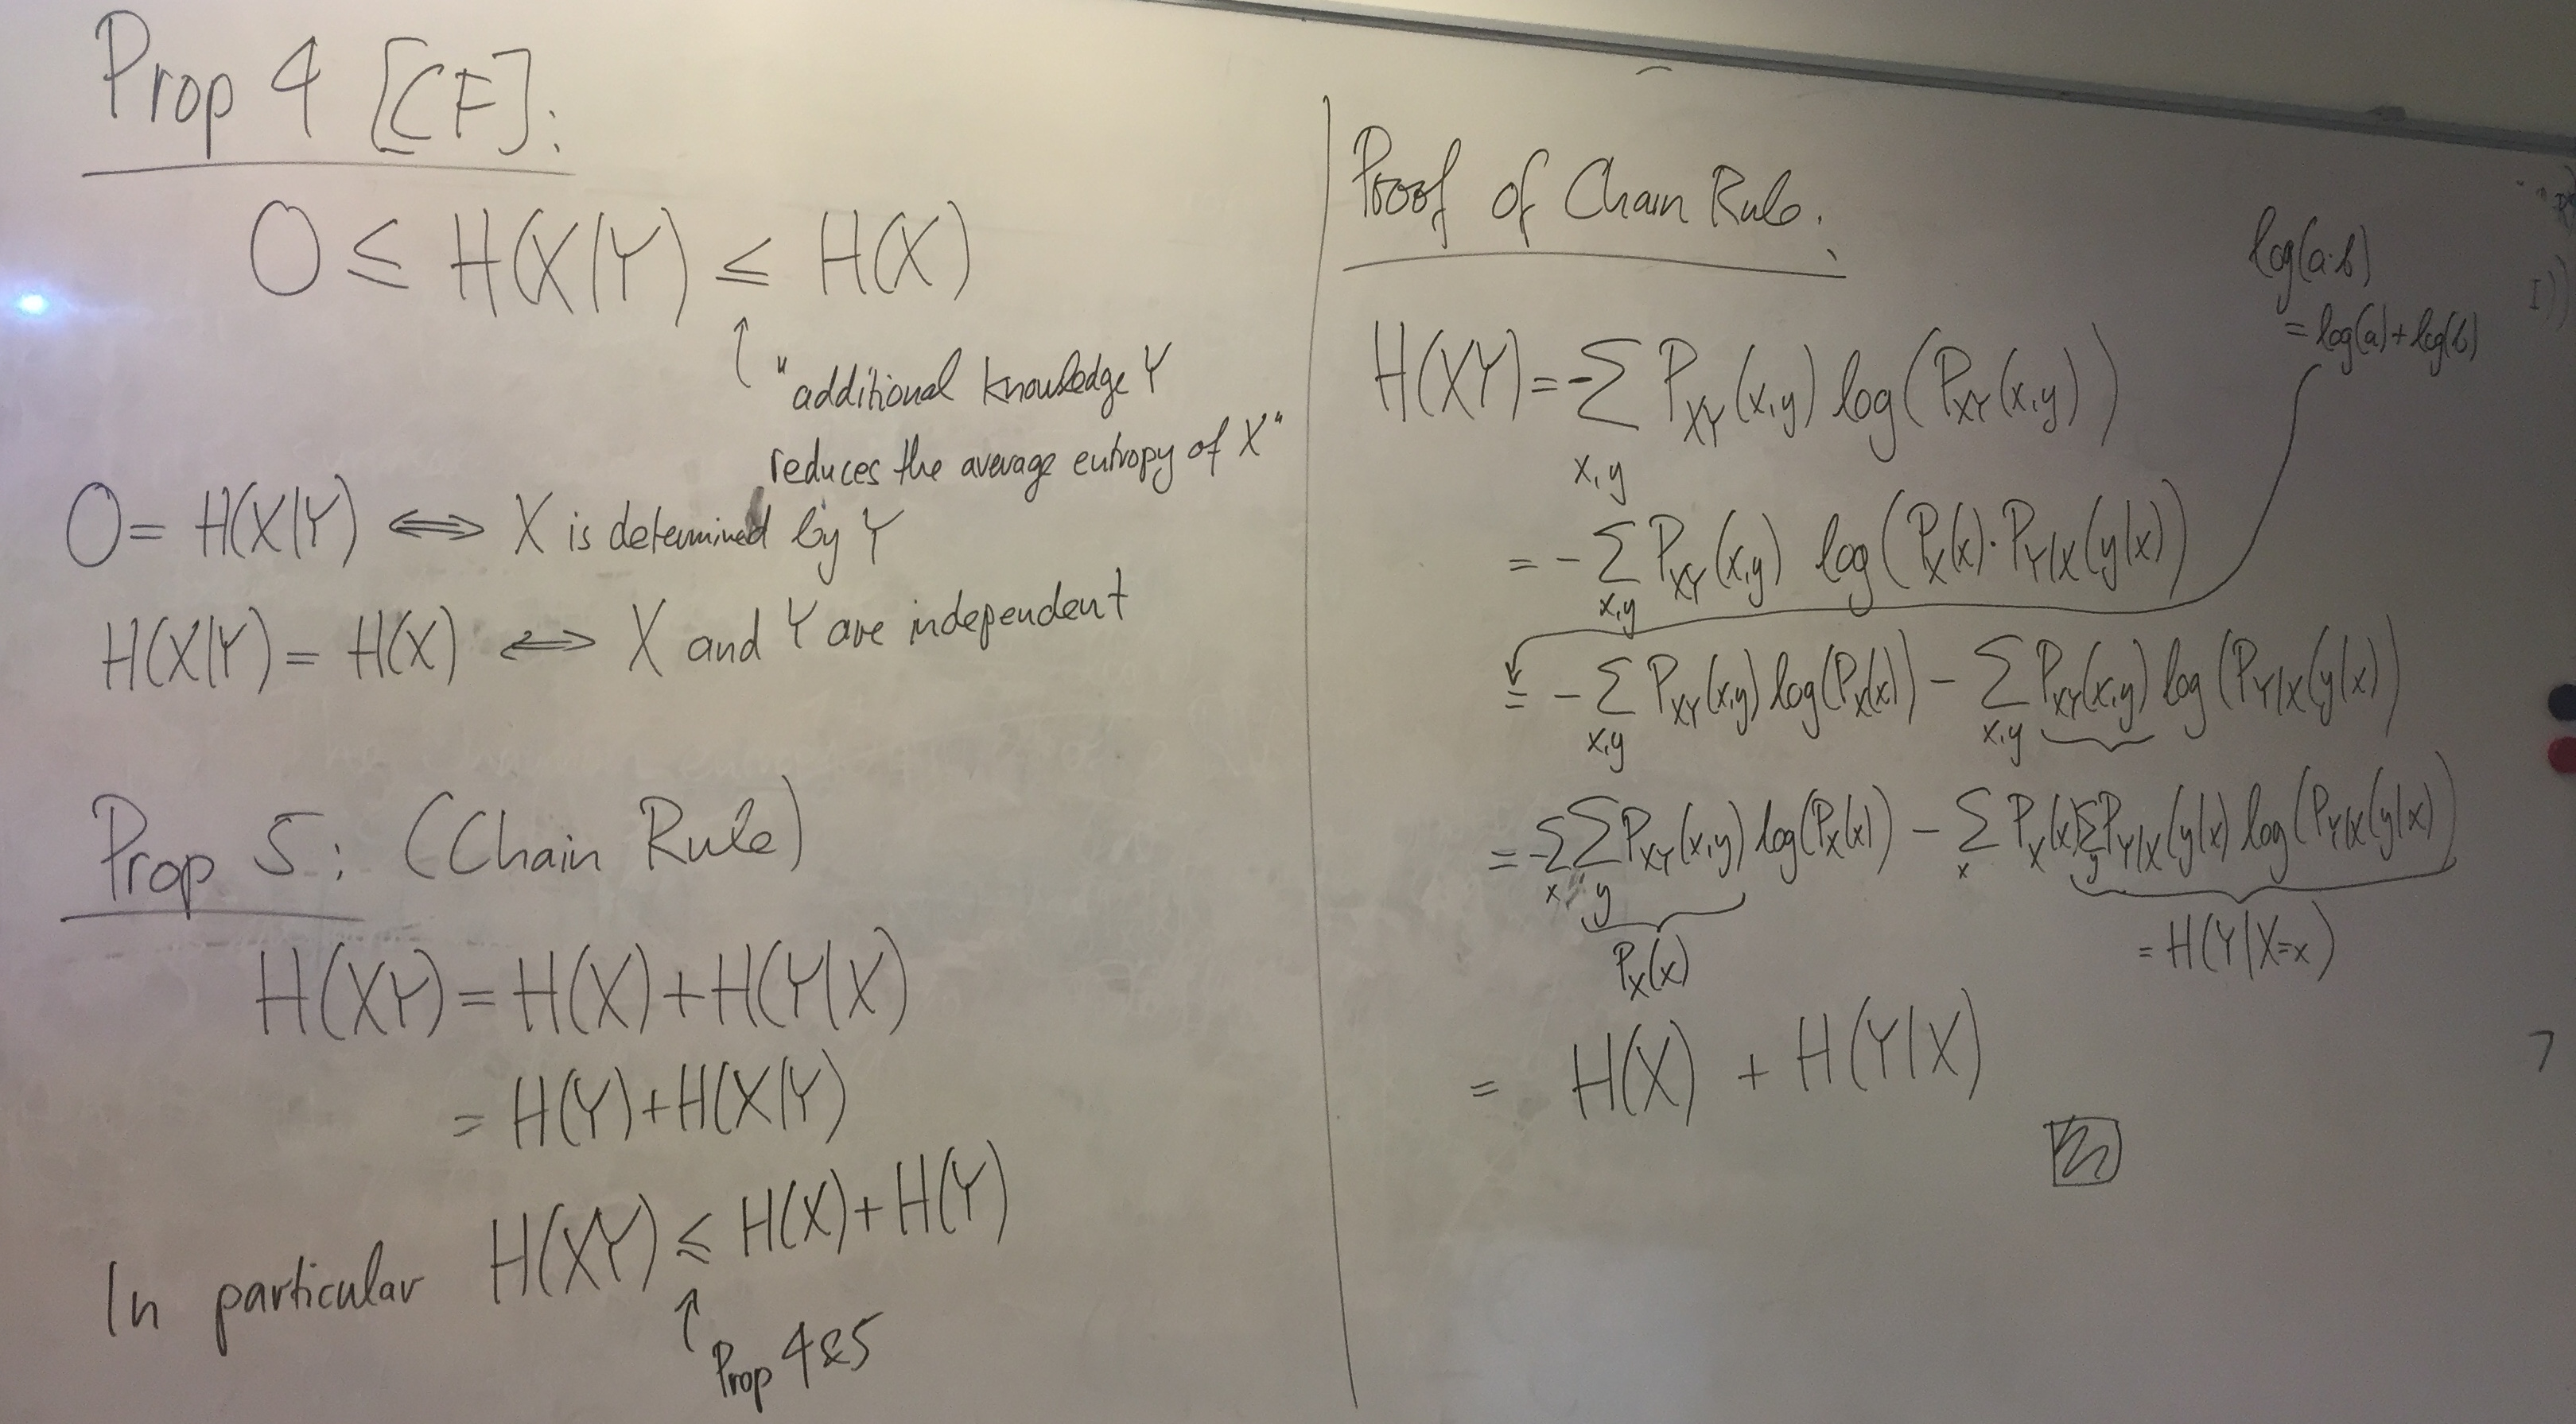 Prop 4 [CF]:
0 ≤ H(X|Y) ≤ H(X)
↑ "additional knowledge Y
reduces the average entropy of X"
0 = H(X|Y) ⟺ X is determined by Y
H(X|Y) = H(X) ⟺ X and Y are independent
Prop 5: (Chain Rule)
H(XY) = H(X) + H(Y|X)
= H(Y) + H(X|Y)
In particular H(XY) ≤ H(X) + H(Y)
↑
Prop 4&5
Proof of Chain Rule:
log(a·b)
= log(a) + log(b)
H(XY) = -∑_{x,y} P_{XY}(x,y) log(P_{XY}(x,y))
= -∑_{x,y} P_{XY}(x,y) log(P_X(x)·P_{Y|X}(y|x))
= -∑_{x,y} P_{XY}(x,y) log(P_X(x)) - ∑_{x,y} P_{XY}(x,y) log(P_{Y|X}(y|x))
= -∑_x ∑_y P_{XY}(x,y) log(P_X(x)) - ∑_x P_X(x) ∑_y P_{Y|X}(y|x) log(P_{Y|X}(y|x))
P_X(x)
= H(Y|X=x)
= H(X) + H(Y|X)